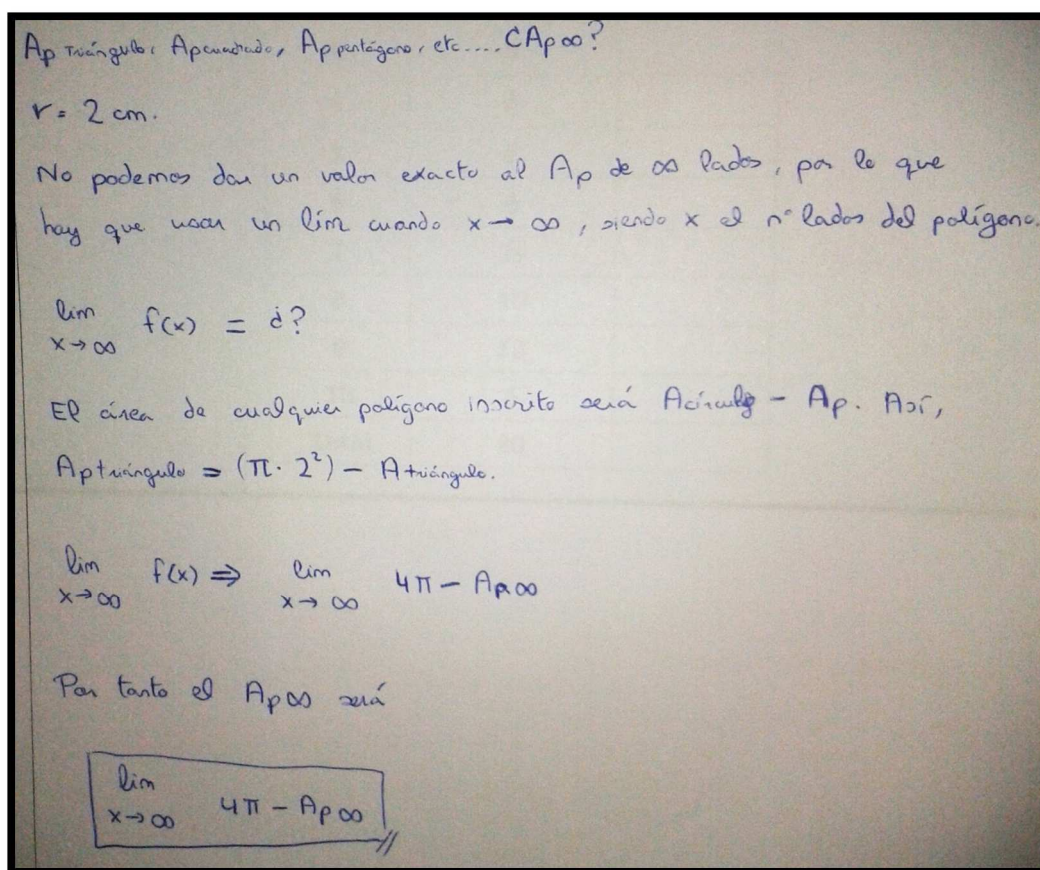 Ap Triángulo, Ap cuadrado, Ap pentágono, etc.... ¿Ap∞?
r = 2 cm.
No podemos dar un valor exacto al Ap de ∞ lados, por lo que
hay que usar un lím cuando x → ∞, siendo x el nº lados del polígono.
lim f(x) = ¿?
x→∞
El área de cualquier polígono inscrito será Acírculo - Ap. Así,
Aptriángulo = (π · 2²) - Atriángulo.
lim f(x) ⇒ lim 4π - Ap∞
x→∞ x→∞
Por tanto el Ap∞ será
lim 4π - Ap∞
x→∞